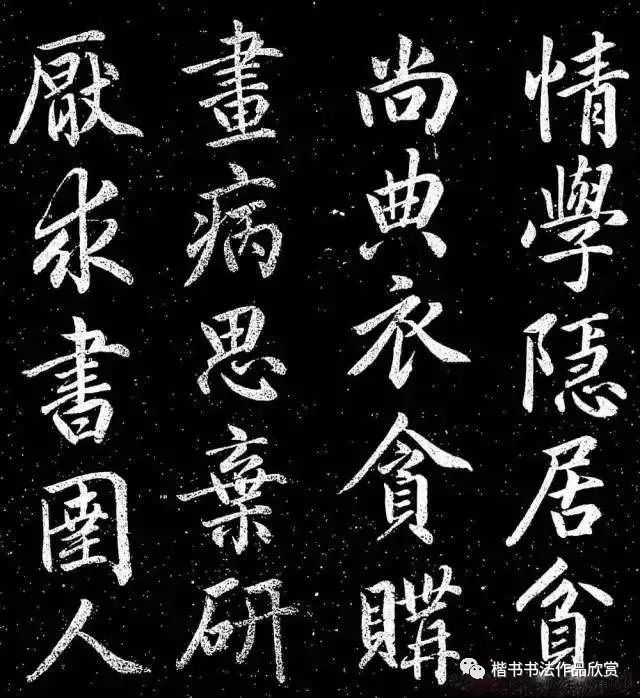 情學隱居貧
尚典衣貪購
畫病思棄研
厭求書圍人
楷书书法作品欣赏